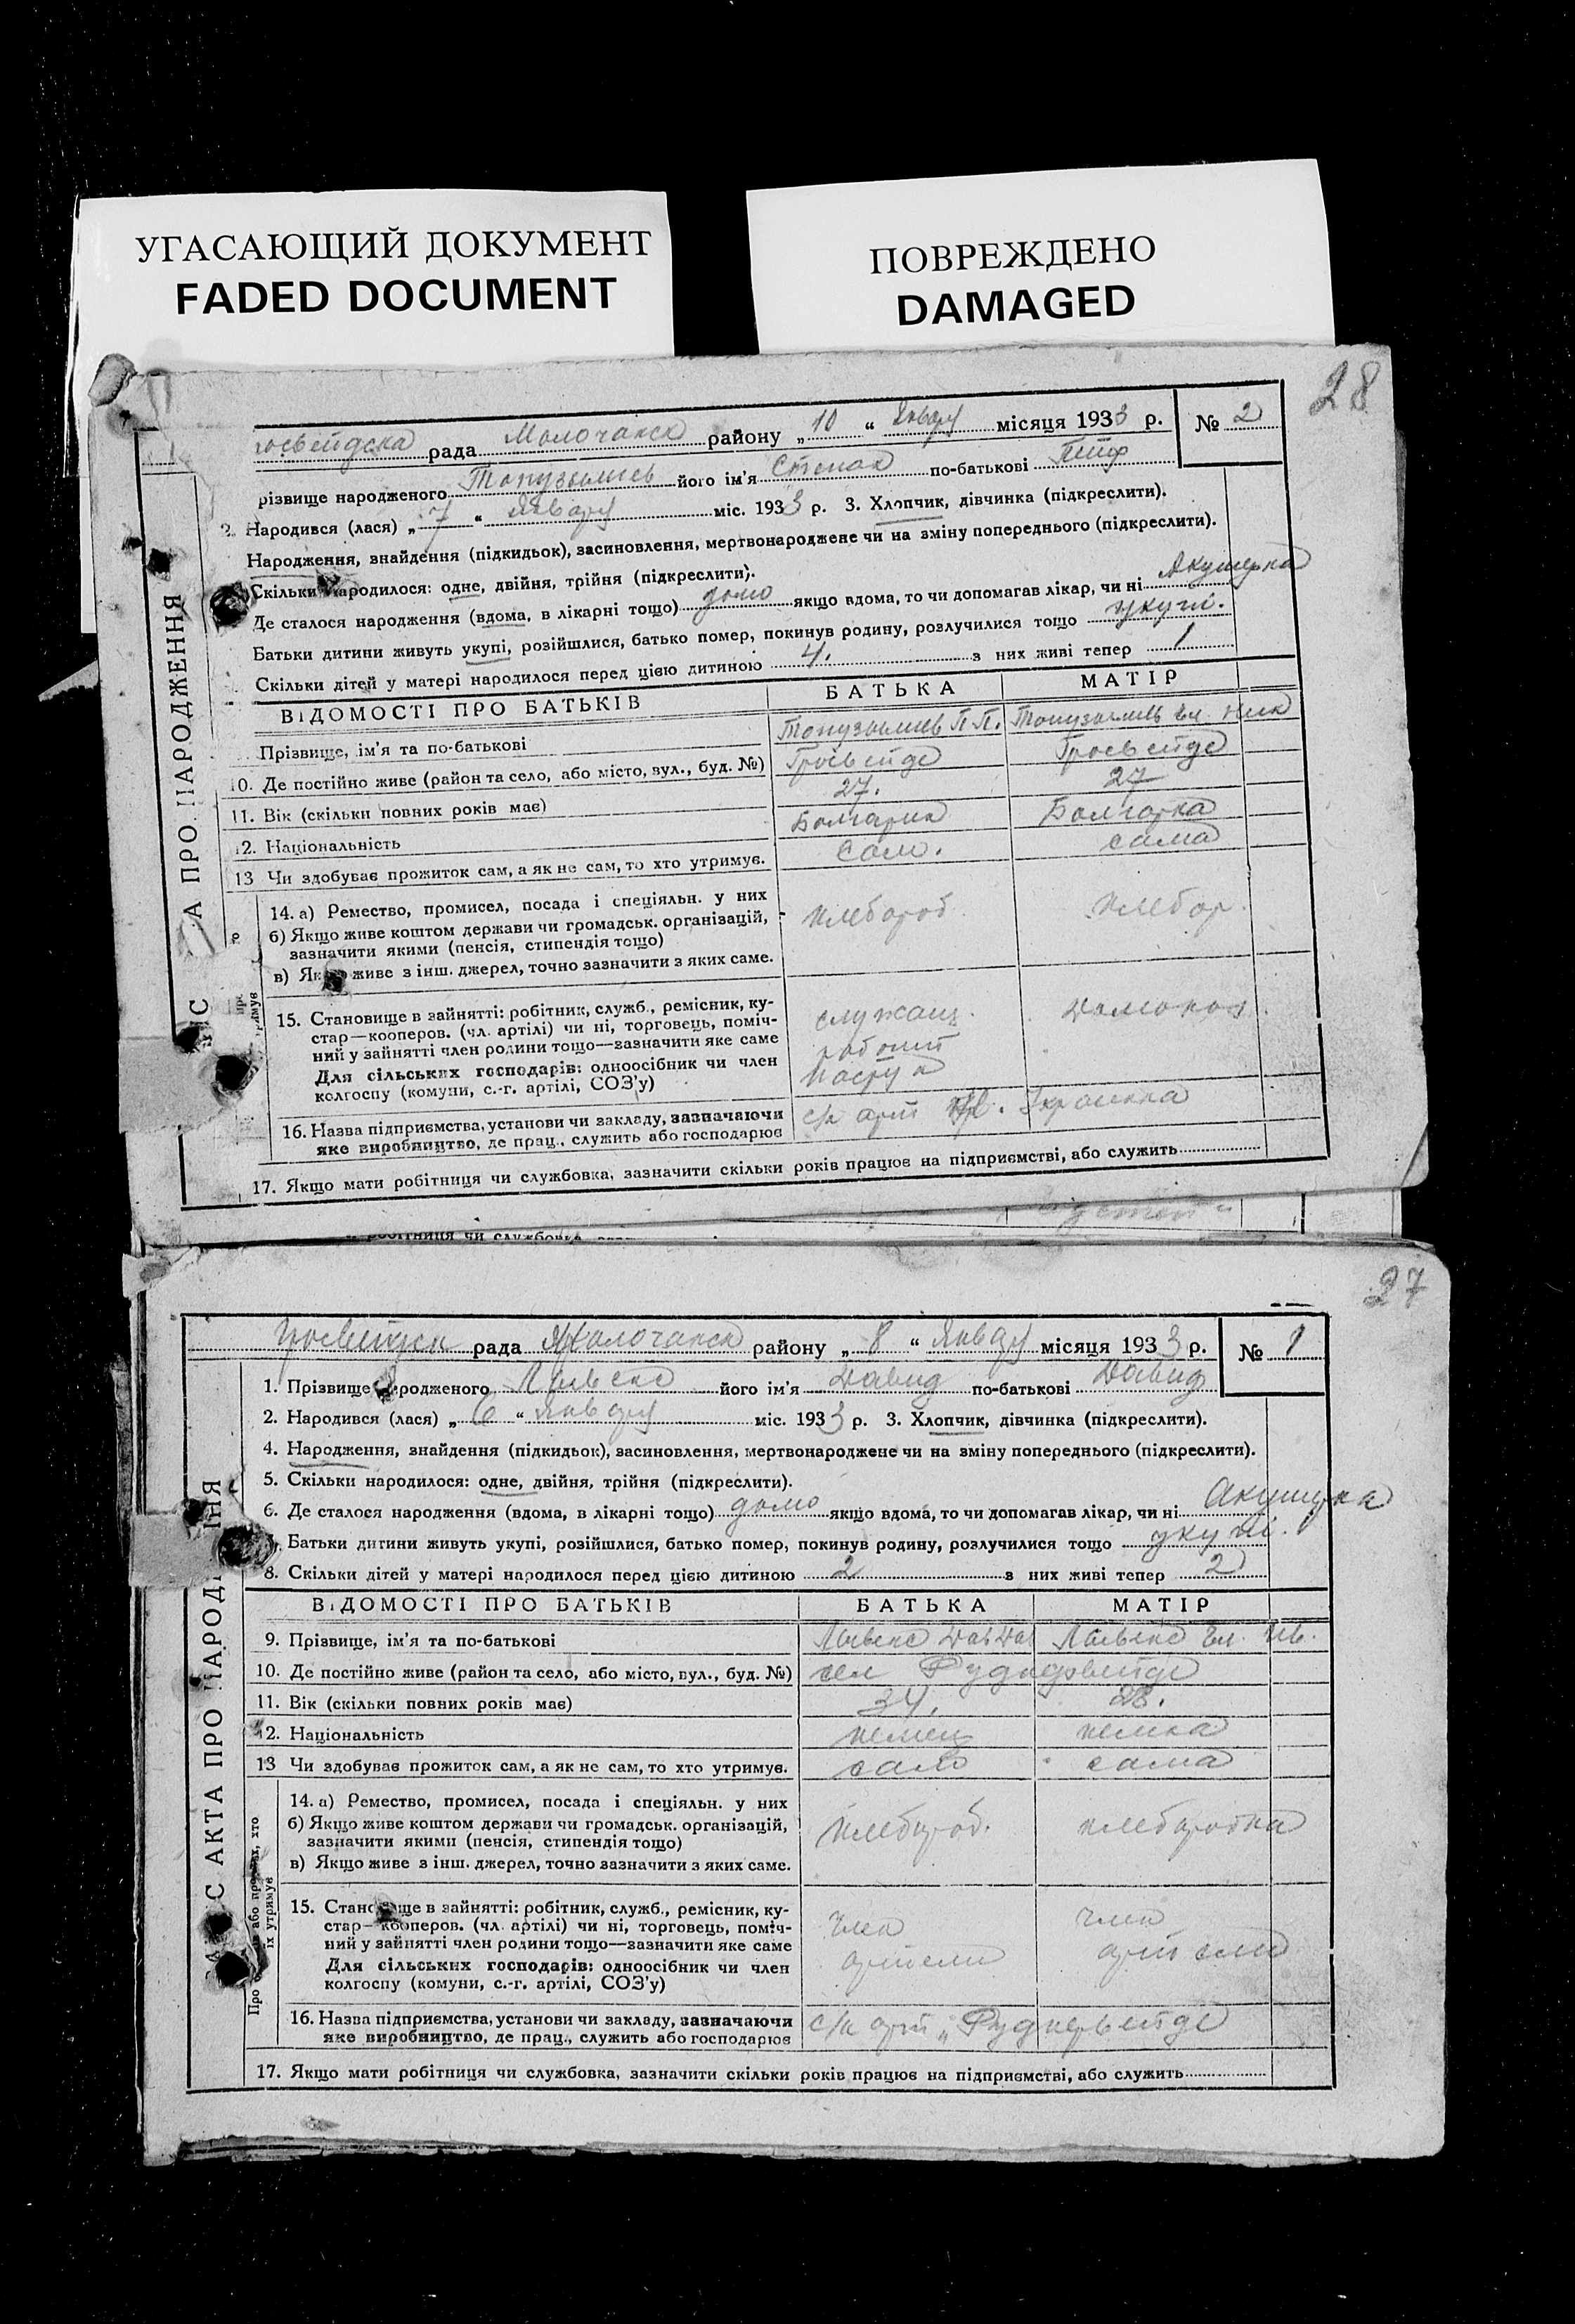 УГАСАЮЩИЙ ДОКУМЕНТ
FADED DOCUMENT
ПОВРЕЖДЕНО
DAMAGED
28
рада Молочанск району „ 10 “ Январ місяця 1933 р. № 2
різвище народженого його ім'я Степан по-батькові Петр
2. Народився (лася) „ 7 “ Январ міс. 1933 р. 3. Хлопчик, дівчинка (підкреслити).
Народження, знайдення (підкидьок), засиновлення, мертвонароджене чи на зміну попереднього (підкреслити).
Скільки народилося: одне, двійня, трійня (підкреслити).
Де сталося народження (вдома, в лікарні тощо) дома якщо вдома, то чи допомагав лікар, чи ні Акушерка
Батьки дитини живуть укупі, розійшлися, батько помер, покинув родину, розлучилися тощо укупі.
Скільки дітей у матері народилося перед цією дитиною 4. з них живі тепер 1
ВІДОМОСТІ ПРО БАТЬКІВ БАТЬКА МАТІР
Прізвище, ім'я та по-батькові П П. Ник
10. Де постійно живе (район та село, або місто, вул., буд. №) Гросвейде Гросвейде
11. Вік (скільки повних років має) 27. 27
12. Національність Болгарин Болгарка
13 Чи здобуває прожиток сам, а як не сам, то хто утримує. Сам. сама
14. а) Ремество, промисел, посада і спеціяльн. у них
б) Якщо живе коштом держави чи громадськ. організацій,
зазначити якими (пенсія, стипендія тощо) хлебороб. хлебор.
в) Якщо живе з інш. джерел, точно зазначити з яких саме.
15. Становище в зайнятті: робітник, служб., ремісник, ку-
стар—кооперов. (чл. артілі) чи ні, торговець, поміч- служащ. домохоз.
ний у зайнятті член родини тощо—зазначити яке саме
Для сільських господарів: одноосібник чи член
колгоспу (комуни, с.-г. артілі, СОЗ'у)
16. Назва підприємства, установи чи закладу, зазначаючи с/х арт
яке виробництво, де прац., служить або господарює
17. Якщо мати робітниця чи службовка, зазначити скільки років працює на підприємстві, або служить
А ПРО НАРОДЖЕННЯ
27
рада Молочанск району „ 8 “ Январ місяця 1933 р. № 1
1. Прізвище родженого його ім'я Давид по-батькові Давид
2. Народився (лася) „ 6 “ Январ міс. 1933 р. 3. Хлопчик, дівчинка (підкреслити).
4. Народження, знайдення (підкидьок), засиновлення, мертвонароджене чи на зміну попереднього (підкреслити).
5. Скільки народилося: одне, двійня, трійня (підкреслити).
6. Де сталося народження (вдома, в лікарні тощо) дома якщо вдома, то чи допомагав лікар, чи ні Акушерка
Батьки дитини живуть укупі, розійшлися, батько помер, покинув родину, розлучилися тощо укупі.
8. Скільки дітей у матері народилося перед цією дитиною 2 з них живі тепер 2
ВІДОМОСТІ ПРО БАТЬКІВ БАТЬКА МАТІР
9. Прізвище, ім'я та по-батькові Дав Дав
10. Де постійно живе (район та село, або місто, вул., буд. №) сел Руднервейде
11. Вік (скільки повних років має) 34. 28.
12. Національність немец немка
13 Чи здобуває прожиток сам, а як не сам, то хто утримує. сам сама
14. а) Ремество, промисел, посада і спеціяльн. у них
б) Якщо живе коштом держави чи громадськ. організацій,
зазначити якими (пенсія, стипендія тощо) хлебороб. хлеборобка
в) Якщо живе з інш. джерел, точно зазначити з яких саме.
15. Становище в зайнятті: робітник, служб., ремісник, ку-
стар—кооперов. (чл. артілі) чи ні, торговець, поміч- член член
ний у зайнятті член родини тощо—зазначити яке саме артели артели
Для сільських господарів: одноосібник чи член
колгоспу (комуни, с.-г. артілі, СОЗ'у)
16. Назва підприємства, установи чи закладу, зазначаючи с/х арт „Руднервейде
яке виробництво, де прац., служить або господарює
17. Якщо мати робітниця чи службовка, зазначити скільки років працює на підприємстві, або служить
С АКТА ПРО НАРОД НЯ
їх утримує